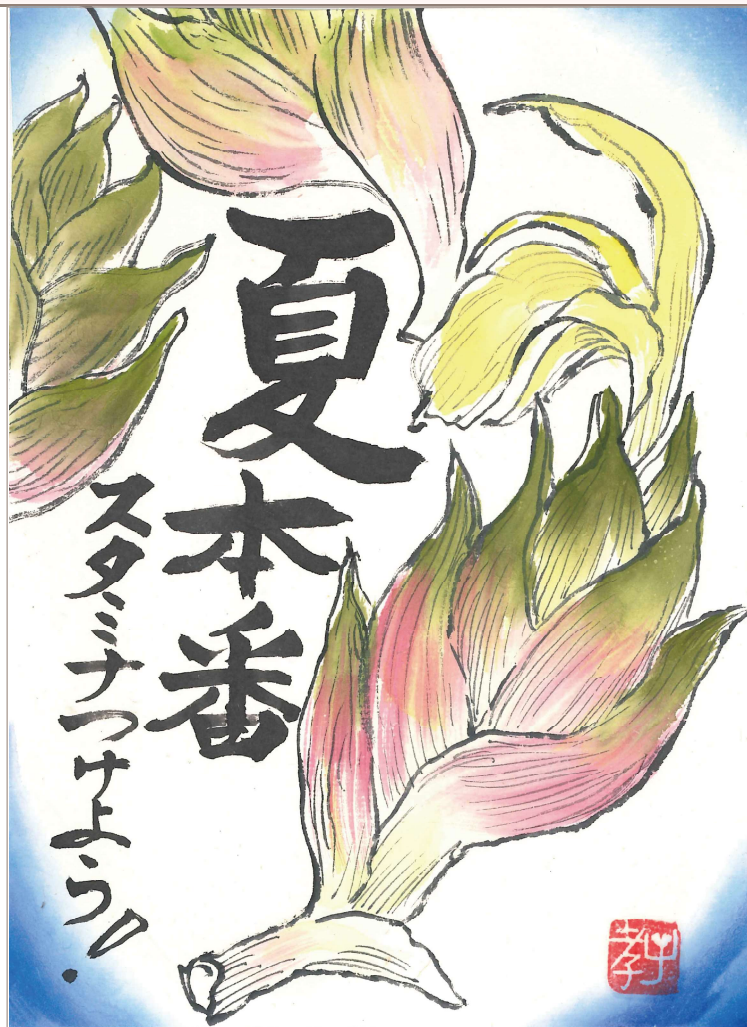 夏本番
スタミナつけよう!